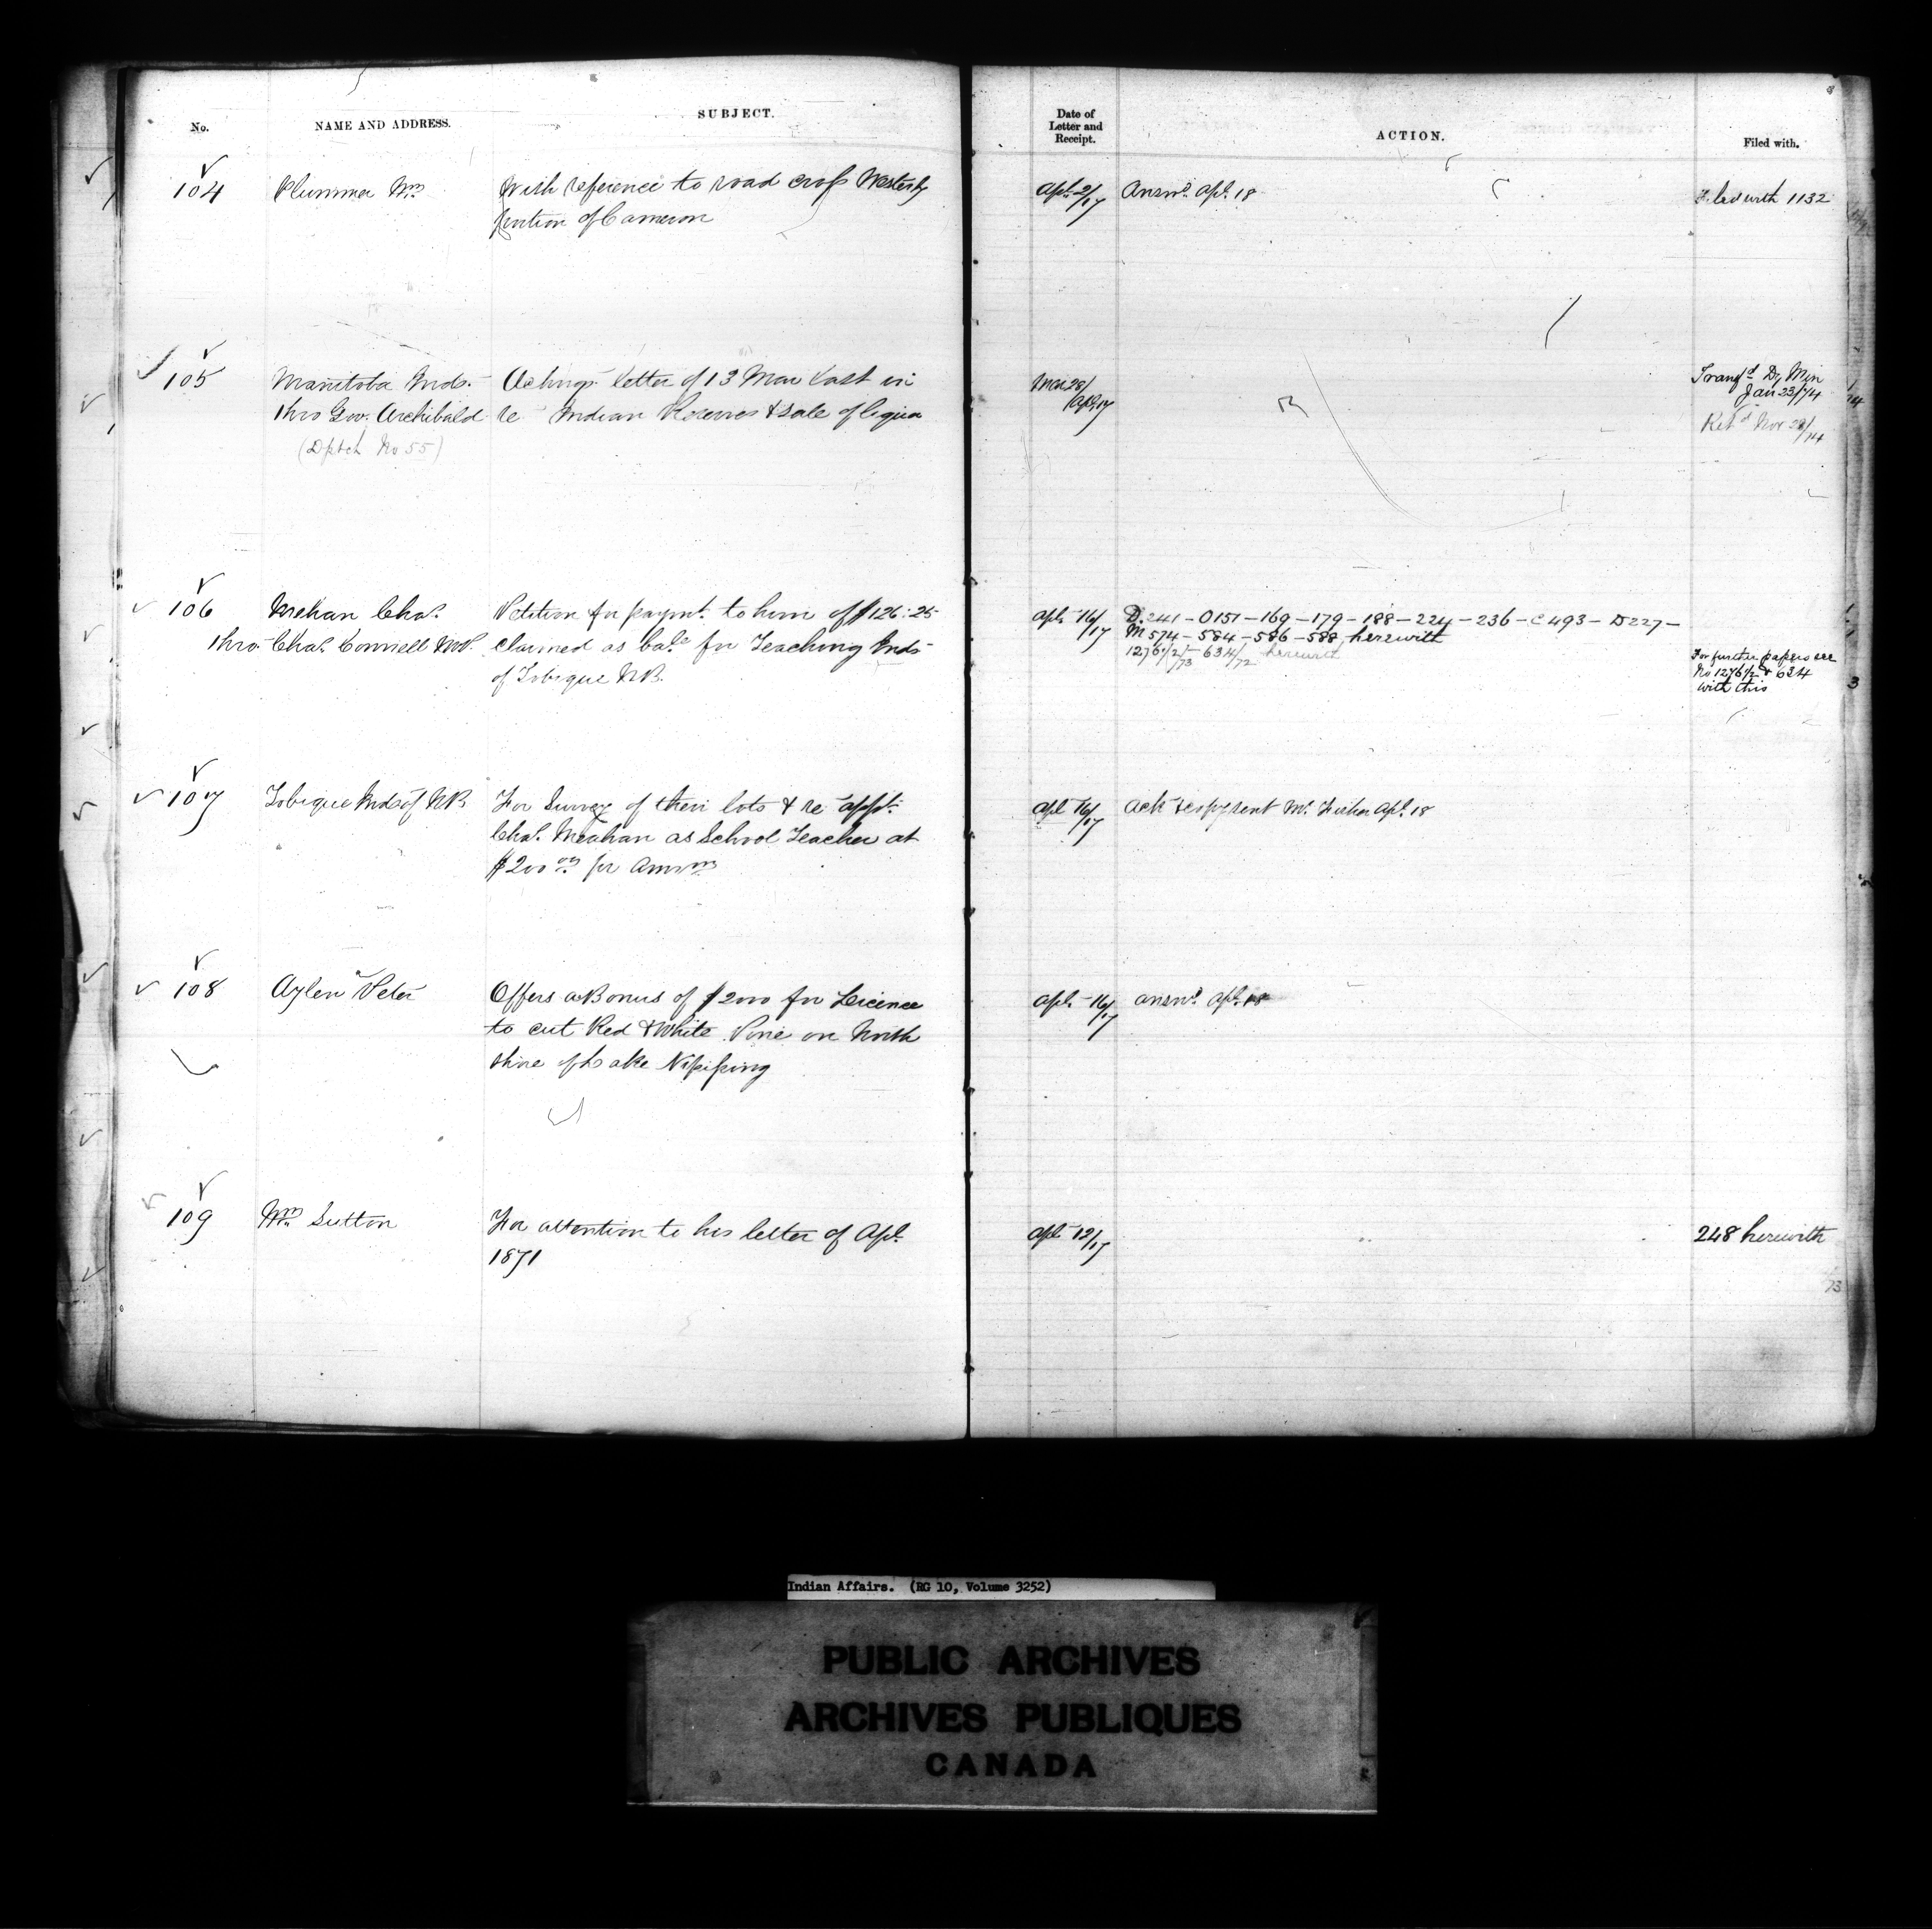 No.
NAME AND ADDRESS.
SUBJECT.
Date of
Letter and
Receipt.
ACTION.
Filed with.
104
Plummer Wm
With reference to road cross Westerly
portion of Cameron
Apl. 2/17
Answd. Apl. 18
Filed with 1132
105
Manitoba Inds.
thro Gov. Archibald
(Dptch No 55)
letter of 13 Mar last in
re Indian Reserves & sale of liquor
Mar 28/
Apl. 17
Transfd Dy Min
Jan 23/74
Retd Nov 28/74
106
Mehan Chas.
thro. Chas. Connell MP.
Petition for paymt. to him of $126:25
claimed as bale for Teaching Inds
of Tobique NB.
Apl. 16/17
D.241 - O151 - 169 - 179 - 188 - 224 - 236 - C493 - D227 -
M574 - 584 - 586 - 588 herewith
1276 1/2/73 - 634/72 herewith
For further papers see
No 1276 1/2 & 634
with this
107
Tobique Inds of NB
For Survey of their lots & re appt.
Chas. Meahan as School Teacher at
$200 00 per Annum
Apl 16/17
Ack & copy sent Mr. Fisher Apl. 18
108
Aylen Peter
Offers a Bonus of $2000 for Licence
to cut Red & White Pine on North
shore of Lake Nipissing
Apl. 16/17
answd. Apl. 18
109
Wm Sutton
For attention to his letter of Apl.
1871
Apl 12/17
248 herewith
73
Indian Affairs. (RG 10, Volume 3252)
PUBLIC ARCHIVES
ARCHIVES PUBLIQUES
CANADA